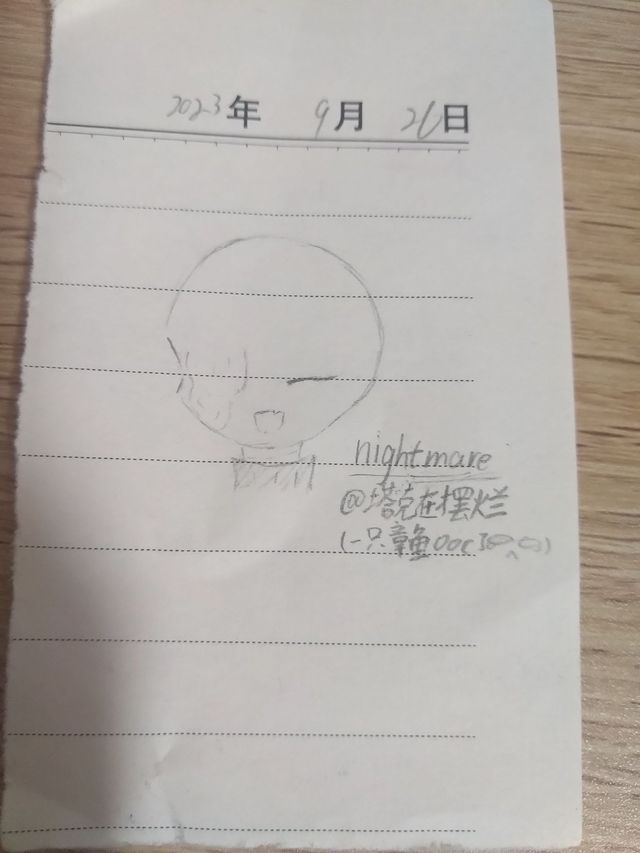 2023年 9月 26日
nightmare
@塔克在摆烂
(一只章鱼OOC